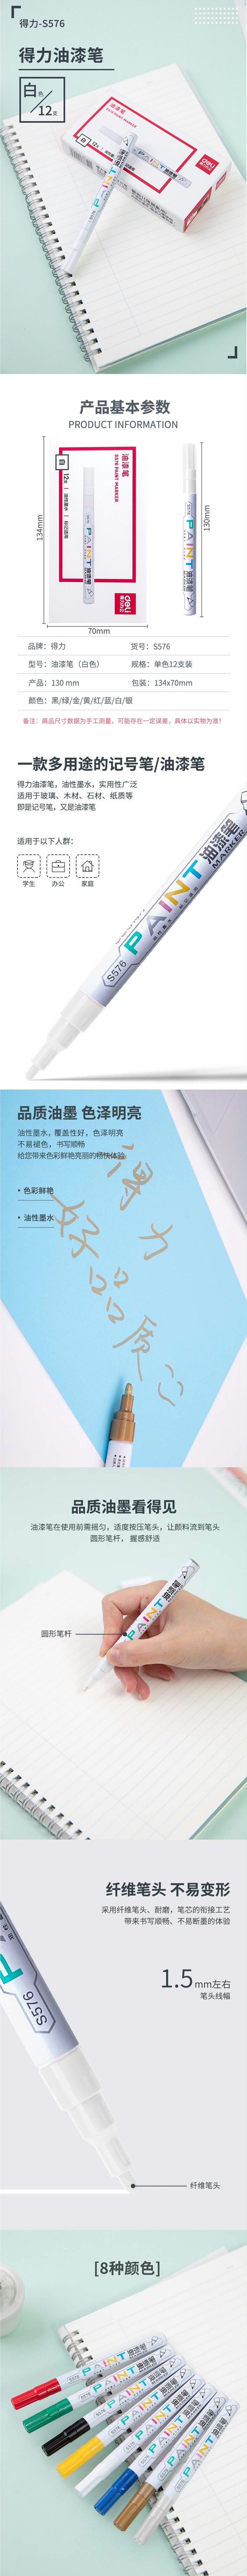 得力-S576
得力油漆笔
白色
12支
油漆笔
S576 PAINT MARKER
白
12支
deli
得力办公
PAINT
油漆笔
产品基本参数
PRODUCT INFORMATION
白
12支 | 油性墨水 | 标记适用
油漆笔
S576 PAINT MARKER
S576
PAINT
油漆笔
deli
得力办公
134mm
70mm
130mm
品牌：得力
货号：S576
型号：油漆笔（白色）
规格：单色12支装
产品：130 mm
包装：134x70mm
颜色：黑/绿/金/黄/红/蓝/白/银
备注：商品尺寸数据为手工测量，可能存在一定误差，具体以实物为准！
一款多用途的记号笔/油漆笔
得力油漆笔，油性墨水，实用性广泛
适用于玻璃、木材、石材、纸质等
即是记号笔，又是油漆笔
适用于以下人群：
学生
办公
家庭
S576
PAINT
油漆笔
MARKER
品质油墨 色泽明亮
油性墨水，覆盖性好，色泽明亮
不易褪色，书写顺畅
给您带来色彩鲜艳亮丽的畅快体验
• 色彩鲜艳
• 油性墨水
得力
好品质
品质油墨看得见
油漆笔在使用前需摇匀，适度按压笔头，让颜料流到笔头
圆形笔杆，握感舒适
圆形笔杆
PAINT
油漆笔
纤维笔头 不易变形
采用纤维笔头、耐磨，笔芯的衔接工艺
带来书写顺畅、不易断墨的体验
1.5mm左右
笔头线幅
S576
纤维笔头
[8种颜色]
S576
PAINT
油漆笔